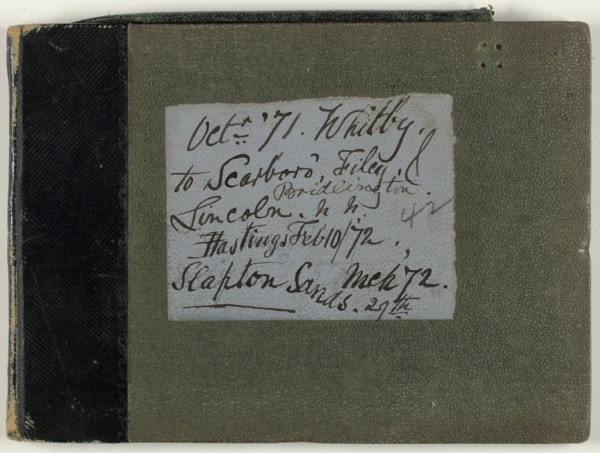 Octr '71. Whitby.
to Scarboro', Filey, &
Bridlington.
Lincoln.
42
Hastings Feb 10/72.
Slapton Sands. Mch '72.
29th